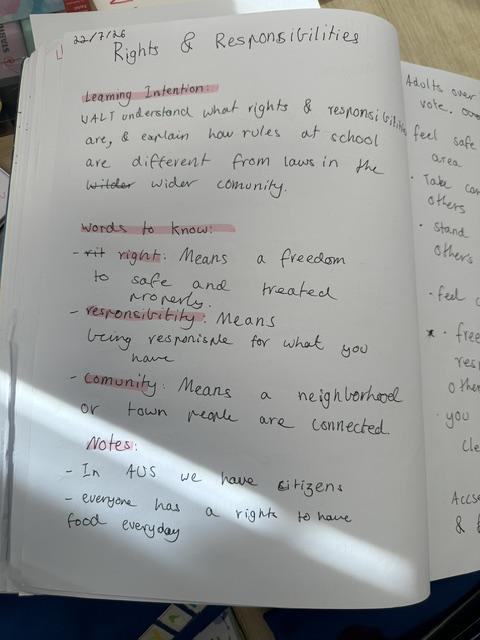 22/7/26
Rights & Responsibilities
Learning Intention:
WALT understand what rights & responsibilities
are, & explain how rules at school
are different from laws in the
wilder wider comunity.
words to know:
- rit right: Means a freedom
to safe and treated
properly.
- responsibitity: Means
being responisple for what you
have
- comunity: Means a neighborhood
or town people are connected
Notes:
- In AUS we have citizens
- everyone has a rights to have
food everyday
Adults over
vote.
feel safe
area
· Take
others
· stand
others
· feel
others
· you
&